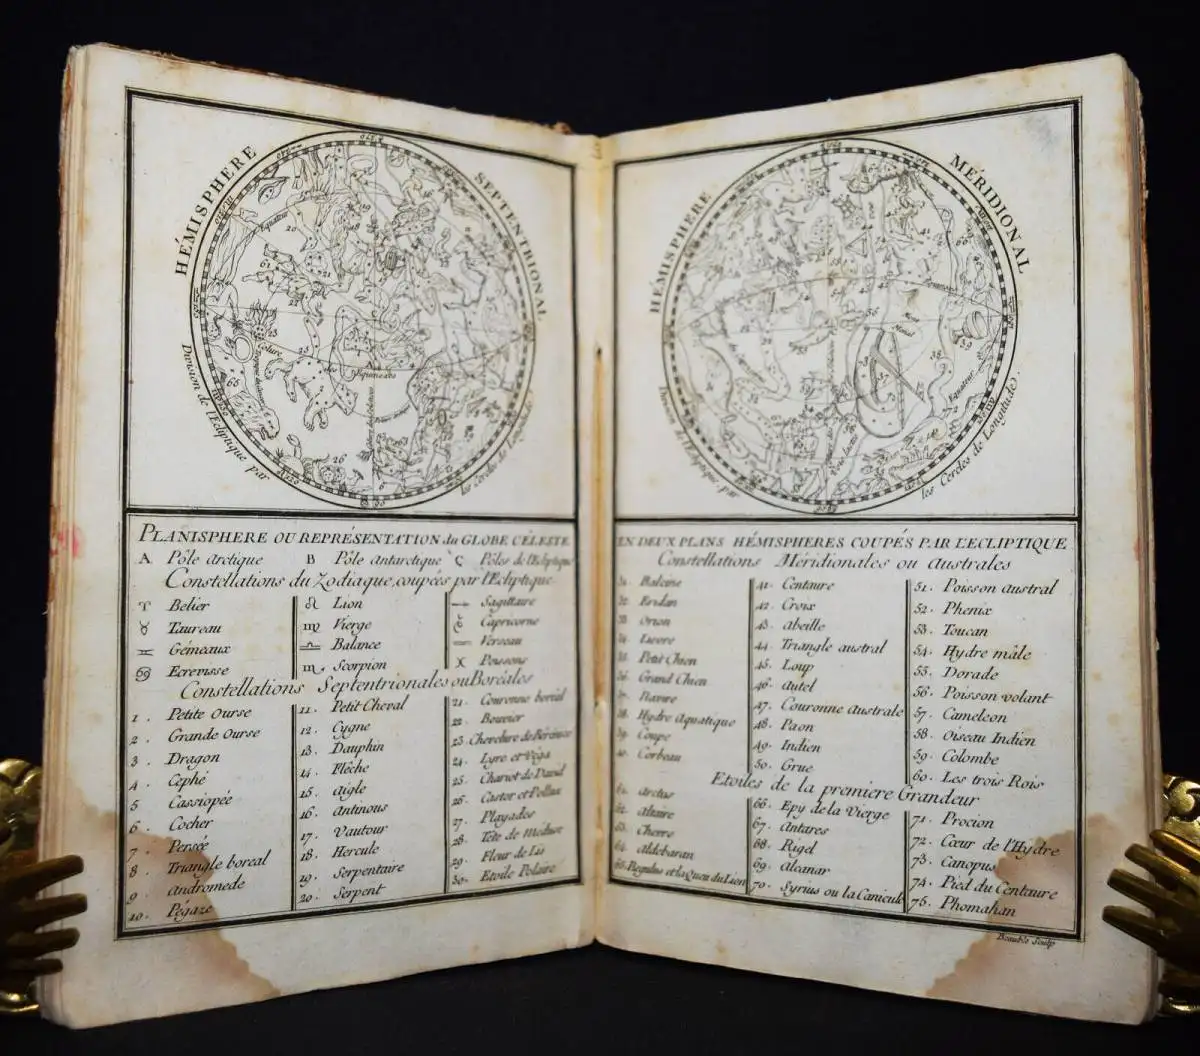 HÉMISPHERE SEPTENTRIONAL
Equateur
Colure
Equinoxes
Division de l'Ecliptique par les Cercles de Longitudes.
PLANISPHERE OU REPRÉSENTATION du GLOBE CÉLESTE
A Pôle arctique B Pôle antarctique C Pôles de l'Ecliptique
Constellations du Zodiaque, coupées par l'Ecliptique
♈ Belier
♉ Taureau
♊ Gémeaux
♋ Ecrevisse
♌ Lion
♍ Vierge
♎ Balance
♏ Scorpion
♐ Sagittaire
♑ Capricorne
♒ Verseau
♓ Poissons
Constellations Septentrionales ou Boréales
1. Petite Ourse
2. Grande Ourse
3. Dragon
4. Cephé
5. Cassiopée
6. Cocher
7. Persée
8. Triangle boreal
9. Andromede
10. Pégaze
11. Petit Cheval
12. Cygne
13. Dauphin
14. Flêche
15. aigle
16. antinous
17. Vautour
18. Hercule
19. Serpentaire
20. Serpent
21. Couronne boréal
22. Bouvier
23. Chevelure de Bérénice
24. Lyre et Véga
25. Chariot de David
26. Castor et Pollux
27. Playades
28. Tête de Méduse
29. Fleur de Lis
30. Etoile Polaire
HÉMISPHERE MÉRIDIONAL
Equateur
Division de l'Ecliptique, par les Cercles de Longitudes.
EN DEUX PLANS HÉMISPHERES COUPÉS PAR L'ECLIPTIQUE
Constellations Méridionales ou australes
31. Baleine
32. Eridan
33. Orion
34. Lievre
35. Petit Chien
36. Grand Chien
37. Navire
38. Hydre Aquatique
39. Coupe
40. Corbeau
41. Centaure
42. Croix
43. abeille
44. Triangle austral
45. Loup
46. autel
47. Couronne Australe
48. Paon
49. Indien
50. Grue
51. Poisson austral
52. Phenix
53. Toucan
54. Hydre mâle
55. Dorade
56. Poisson volant
57. Cameleon
58. Oiseau Indien
59. Colombe
60. Les trois Rois
Etoiles de la premiere Grandeur
61. Arctus
62. altaire
63. Cherre
64. aldebaran
65. Regulus et la queu du Lion
66. Epy de la Vierge
67. antares
68. Rigel
69. alcanar
70. Syrius ou la Canicule
71. Procion
72. Cœur de l'Hydre
73. Canopus
74. Pied du Centaure
75. Phomahan